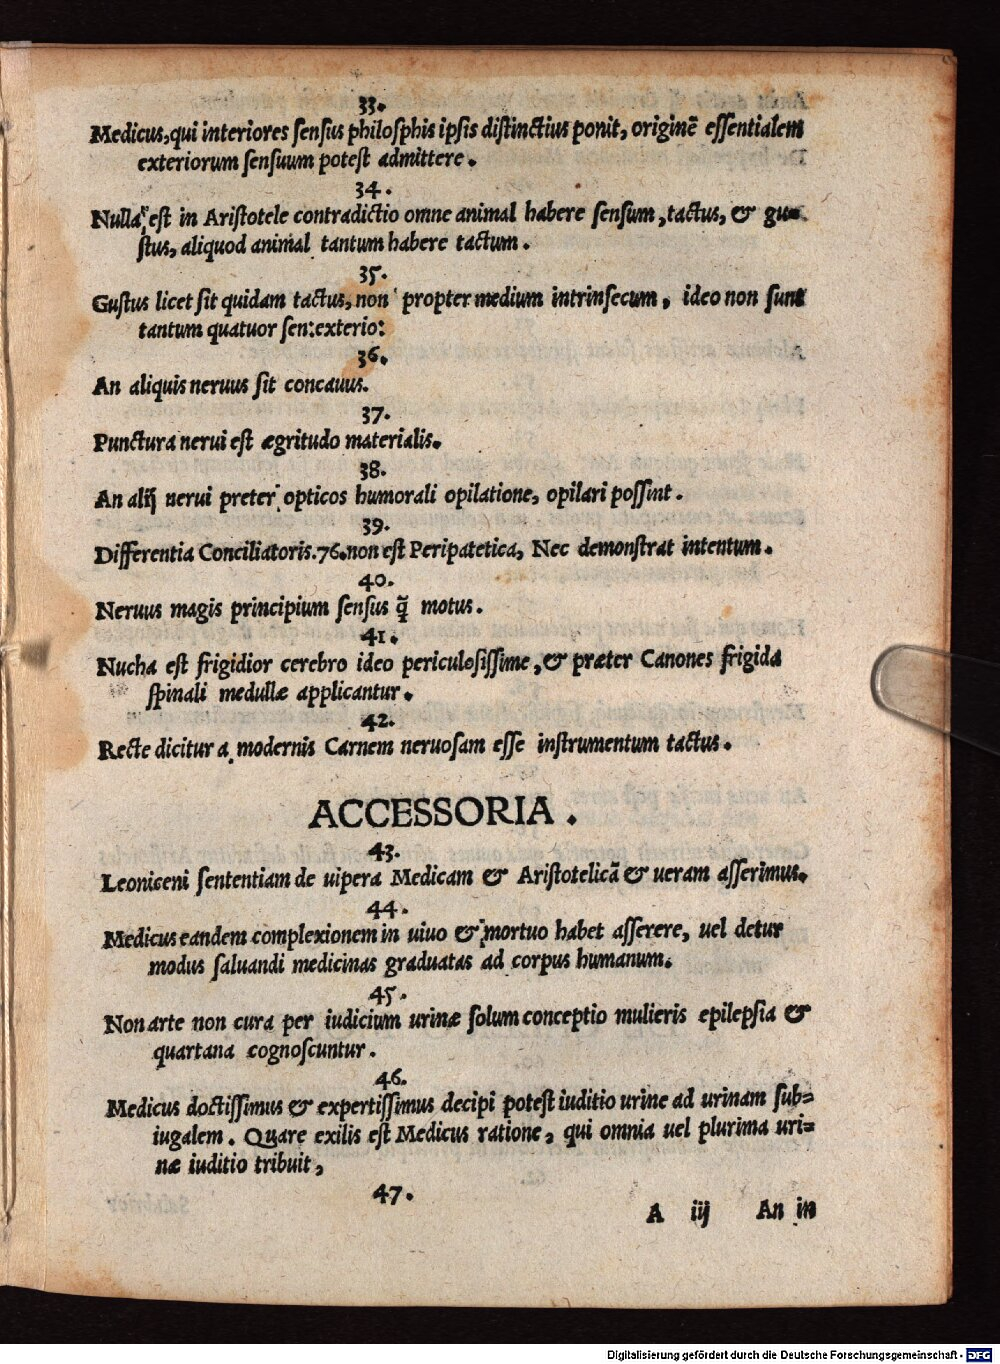 33.
Medicus, qui interiores sensus philosphis ipsis distinctius ponit, originē essentialem
exteriorum sensuum potest admittere.
34.
Nulla est in Aristotele contradictio omne animal habere sensum, tactus, & gu=
stus, aliquod animal tantum habere tactum.
35.
Gustus licet sit quidam tactus, non propter medium intrinsecum, ideo non sunt
tantum quatuor sen: exterio:
36.
An aliquis neruus sit concauus.
37.
Punctura nerui est ægritudo materialis.
38.
An alij nerui preter opticos humorali opilatione, opilari possint.
39.
Differentia Conciliatoris. 76. non est Peripatetica, Nec demonstrat intentum.
40.
Neruus magis principium sensus q̃ motus.
41.
Nucha est frigidior cerebro ideo periculosissime, & præter Canones frigida
spinali medullæ applicantur.
42.
Recte dicitur a modernis Carnem neruosam esse instrumentum tactus.
ACCESSORIA.
43.
Leoniceni sententiam de uipera Medicam & Aristotelicã & ueram asserimus.
44.
Medicus eandem complexionem in uiuo & mortuo habet asserere, uel detur
modus saluandi medicinas graduatas ad corpus humanum.
45.
Non arte non cura per iudicium urinæ solum conceptio mulieris epilepsia &
quartana cognoscuntur.
46.
Medicus doctissimus & expertissimus decipi potest iuditio urine ad urinam sub=
iugalem. Quare exilis est Medicus ratione, qui omnia uel plurima uri=
næ iuditio tribuit,
47.
A iij An in
Digitalisierung gefördert durch die Deutsche Forschungsgemeinschaft - DFG